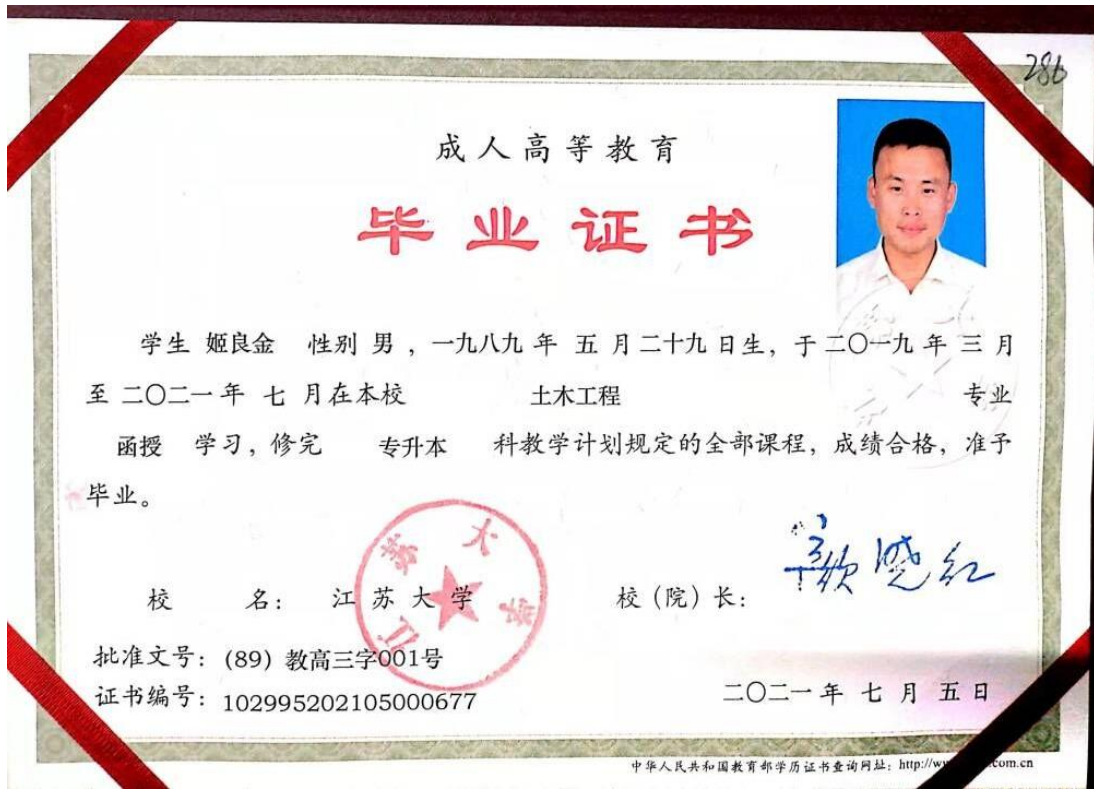 286
成人高等教育
毕业证书
学生 姬良金 性别 男 ,一九八九 年 五 月二十九 日生,于二〇一九 年 三 月
至 二〇二一 年 七 月在本校 土木工程 专业
函授 学习,修完 专升本 科教学计划规定的全部课程,成绩合格,准予
毕业。
江苏大学
校 名: 江苏大学 校(院)长: 颜晓红
批准文号:(89)教高三字001号
证书编号:102995202105000677 二〇二一 年 七 月 五 日
中华人民共和国教育部学历证书查询网址:http://ww com.cn